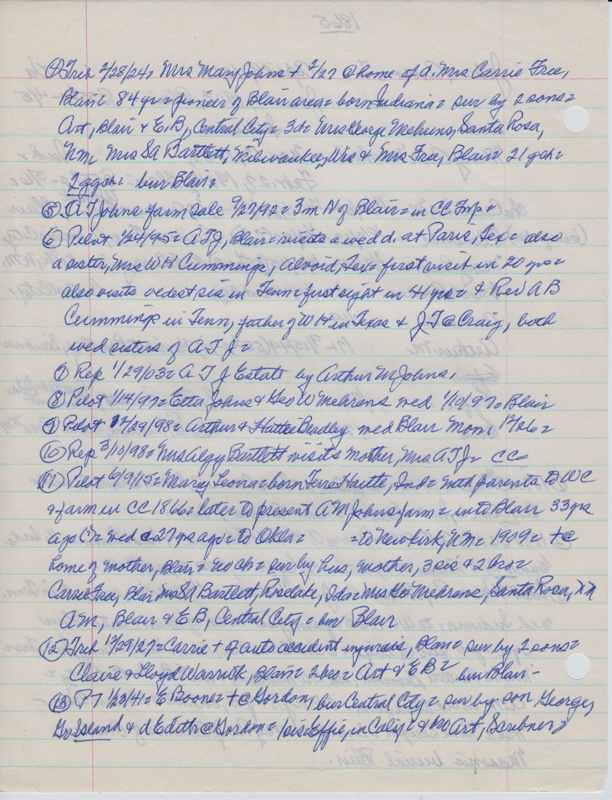 1865
④ Trib 2/28/24= Mrs Mary Johns + 2/27 @ home of d. Mrs Carrie Free,
Blair= 84 yrs= pioneer of Blair area= born Indiana= sur by 2 sons=
Art, Blair & E.B, Central City= 3d= Mrs George Mehrens, Santa Rosa,
N.M. Mrs SA Bartlett, Milwaukee, Wis & Mrs Free, Blair= 21 gch=
2 ggch= bur Blair=
⑤ A T Johns farm sale 9/27/92= 3 m N of Blair= in CC Twp=
⑥ Pilot 1/24/95= ATJ, Blair= visits a wed d. at Paris, Tex= also
a sister, Mrs W H Cummings, Alvord, Tex= first visit in 20 yrs=
also visits oldest sis in Tenn= first sight in 41 yrs= & Rev A B
Cummings in Tenn, father of W H in Texas & J T @ Craig, both
wed sisters of A T J=
⑦ Rep 1/29/03= A T J Estate by Arthur M Johns,
⑧ Pilot 1/14/97= Etta Johns & Geo W Mehrens wed 1/10/97= Blair
⑨ Pilot 12/29/98= Arthur & Hattie Bradley wed Blair Mon. 12/26=
⑩ Rep 3/10/98= Mrs Algy Bartlett visits mother, Mrs A T J= CC
⑪ Pilot 6/9/15= Mary Leora= born Terre Haute, Ind= with parents to WC
& farm in CC 1866= later to present A M Johns farm= into Blair 33 yrs
ago= wed 27 yrs ago= to Okla= =to Newkirk, N.M= 1909= + @
home of mother, Blair= no ch= sur by hus, mother, 3 sis & 2 bro=
Carrie Free, Blair Mrs SA Bartlett, Ida= Mrs Geo Mehrens, Santa Rosa, N M
A.M., Blair & E B, Central City= bur Blair
⑫ Trib 12/29/27= Carrie + of auto accident injuries, Blair= sur by 2 sons=
Claire & Lloyd Warrick, Blair= 2 bro= Art & E B= bur Blair=
⑬ PT 1/23/41= E Boone= + @ Gordon, bur Central City= sur by son George,
Gr. Island & d Edith @ Gordon= sis Effie, in Calif & bro Art, Scribner=
Masonic burial Blair.